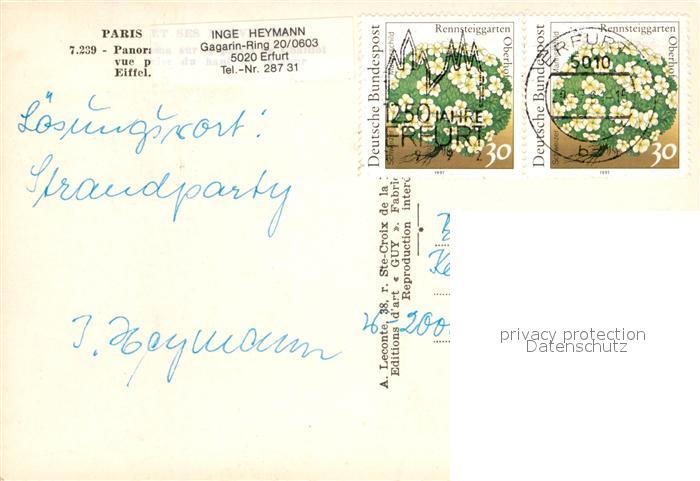 PARIS ET SES
7.239 - Panor
vue p
Eiffel.
INGE HEYMANN
Gagarin-Ring 20/0603
5020 Erfurt
Tel.-Nr. 287 31
Deutsche Bundespost
Rennsteiggarten
Oberhof
30
1991
Deutsche Bundespost
Rennsteiggarten
Oberhof
30
1991
1250 JAHRE
ERFURT
ERFURT
5010
Lösungswort:
Strandparty
I. Heymann
A. Leconte, 38, r. Ste-Croix de la
Editions d'art « GUY ». Fabric
Reproduction interd
W-200
privacy protection
Datenschutz